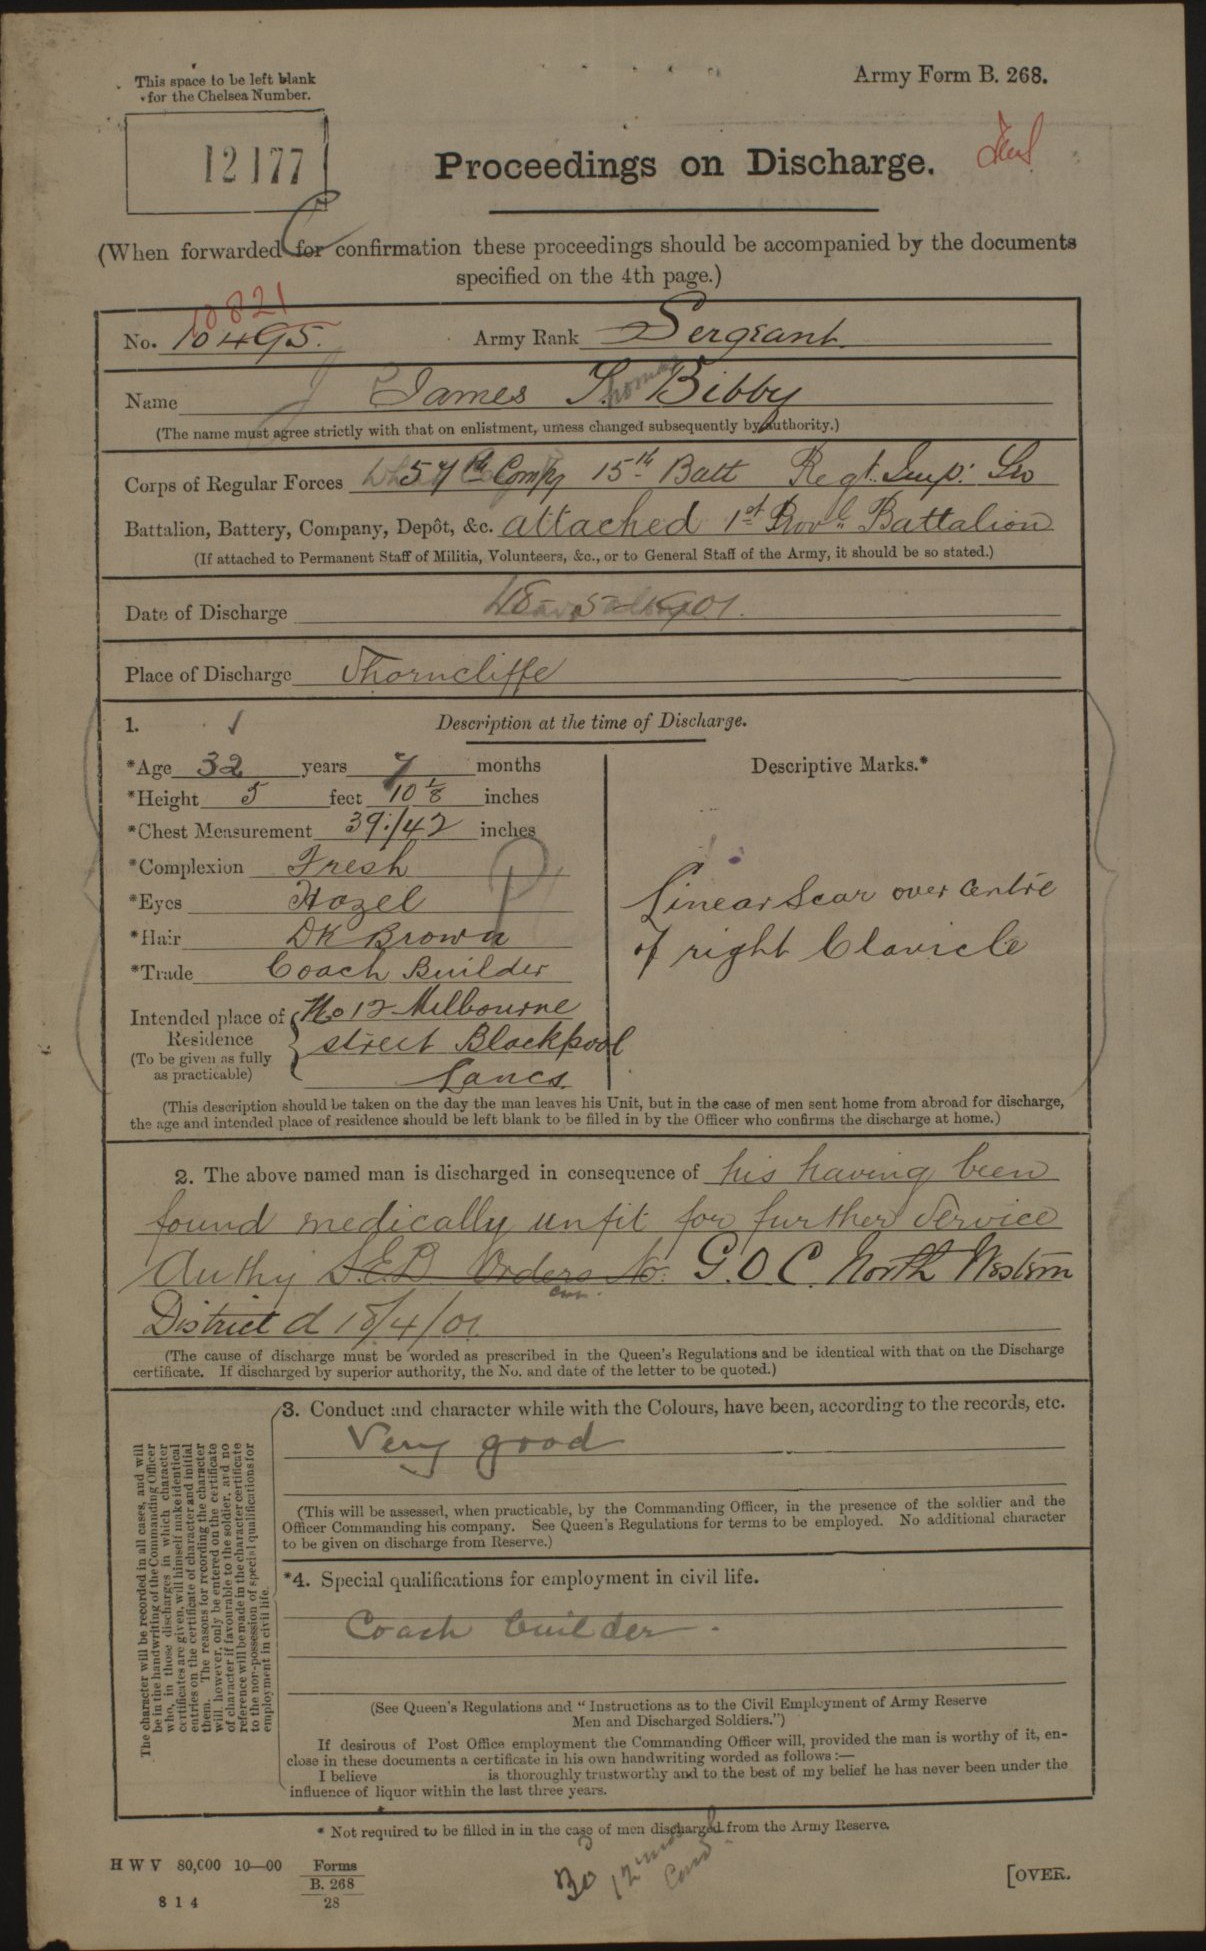 This space to be left blank
for the Chelsea Number.
Army Form B. 268.
12177
Proceedings on Discharge.
(When forwarded for confirmation these proceedings should be accompanied by the documents
specified on the 4th page.)
10821
No. 10495. Army Rank Sergeant.
Name James Thomas Bibby
(The name must agree strictly with that on enlistment, unless changed subsequently by authority.)
Corps of Regular Forces 57th Compy 15th Batt Regt. Imp: Yeo
Battalion, Battery, Company, Depôt, &c. attached 1st Provl. Battalion
(If attached to Permanent Staff of Militia, Volunteers, &c., or to General Staff of the Army, it should be so stated.)
Date of Discharge 5-1901.
Place of Discharge Thorncliffe
1. Description at the time of Discharge.
*Age 32 years 7 months
Descriptive Marks.*
*Height 5 feet 10 1/8 inches
*Chest Measurement 39./42 inches
*Complexion Fresh
*Eyes Hazel
Linear Scar over centre
*Hair Dk Brown
of right Clavicle
*Trade Coach Builder
Intended place of Residence (To be given as fully as practicable) No 12 Melbourne
street Blackpool
Lancs.
(This description should be taken on the day the man leaves his Unit, but in the case of men sent home from abroad for discharge,
the age and intended place of residence should be left blank to be filled in by the Officer who confirms the discharge at home.)
2. The above named man is discharged in consequence of his having been
found medically unfit for further Service
Authy S.E.D. Orders No. G.O.C. North Western
District d 18/4/01.
(The cause of discharge must be worded as prescribed in the Queen's Regulations and be identical with that on the Discharge
certificate. If discharged by superior authority, the No. and date of the letter to be quoted.)
3. Conduct and character while with the Colours, have been, according to the records, etc.
Very good
(This will be assessed, when practicable, by the Commanding Officer, in the presence of the soldier and the
Officer Commanding his company. See Queen's Regulations for terms to be employed. No additional character
to be given on discharge from Reserve.)
The character will be recorded in all cases, and will
be in the handwriting of the Commanding Officer
who, in those discharges in which character
certificates are given, will himself make identical
entries on the certificate of character and initial
them. The reasons for recording the character
will, however, only be entered on the certificate
of character if favourable to the soldier, and no
reference will be made in the character certificate
to the non-possession of special qualifications for
employment in civil life.
*4. Special qualifications for employment in civil life.
Coach builder.
(See Queen's Regulations and "Instructions as to the Civil Employment of Army Reserve
Men and Discharged Soldiers.")
If desirous of Post Office employment the Commanding Officer will, provided the man is worthy of it, en-
close in these documents a certificate in his own handwriting worded as follows :—
I believe is thoroughly trustworthy and to the best of my belief he has never been under the
influence of liquor within the last three years.
* Not required to be filled in in the case of men discharged from the Army Reserve.
H W V 80,000 10—00 Forms
B. 268
28
8 1 4
30 12
[OVER.